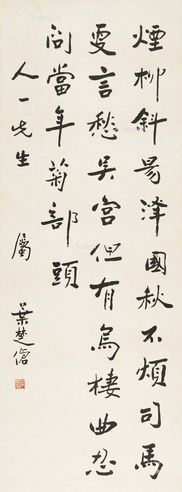 煙柳斜陽澤國秋不煩司馬
更言愁吳宮但有烏棲曲忍
問當年菊部頭
人一先生 屬
葉楚傖